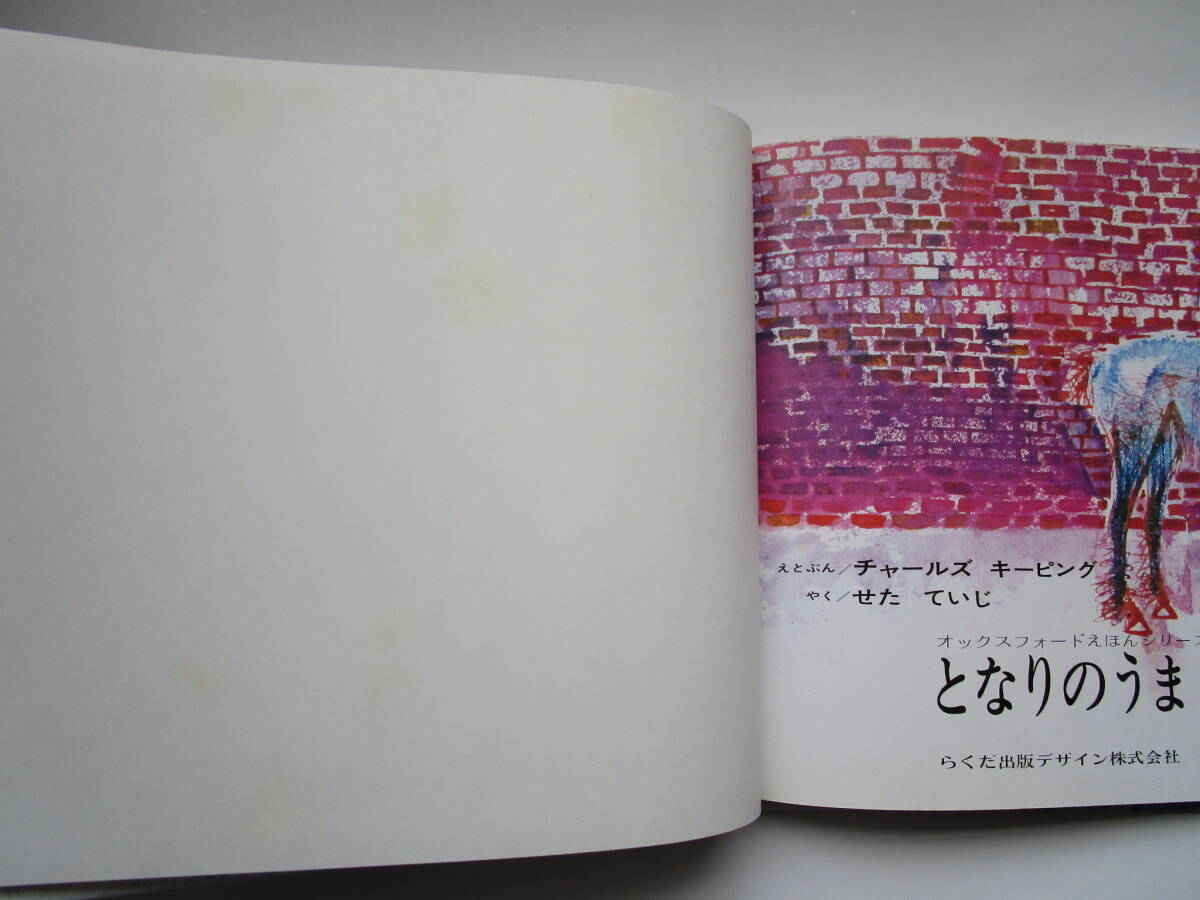 えとぶん／チャールズ キーピング
やく／せた ていじ
オックスフォードえほんシリーズ
となりのうま
らくだ出版デザイン株式会社